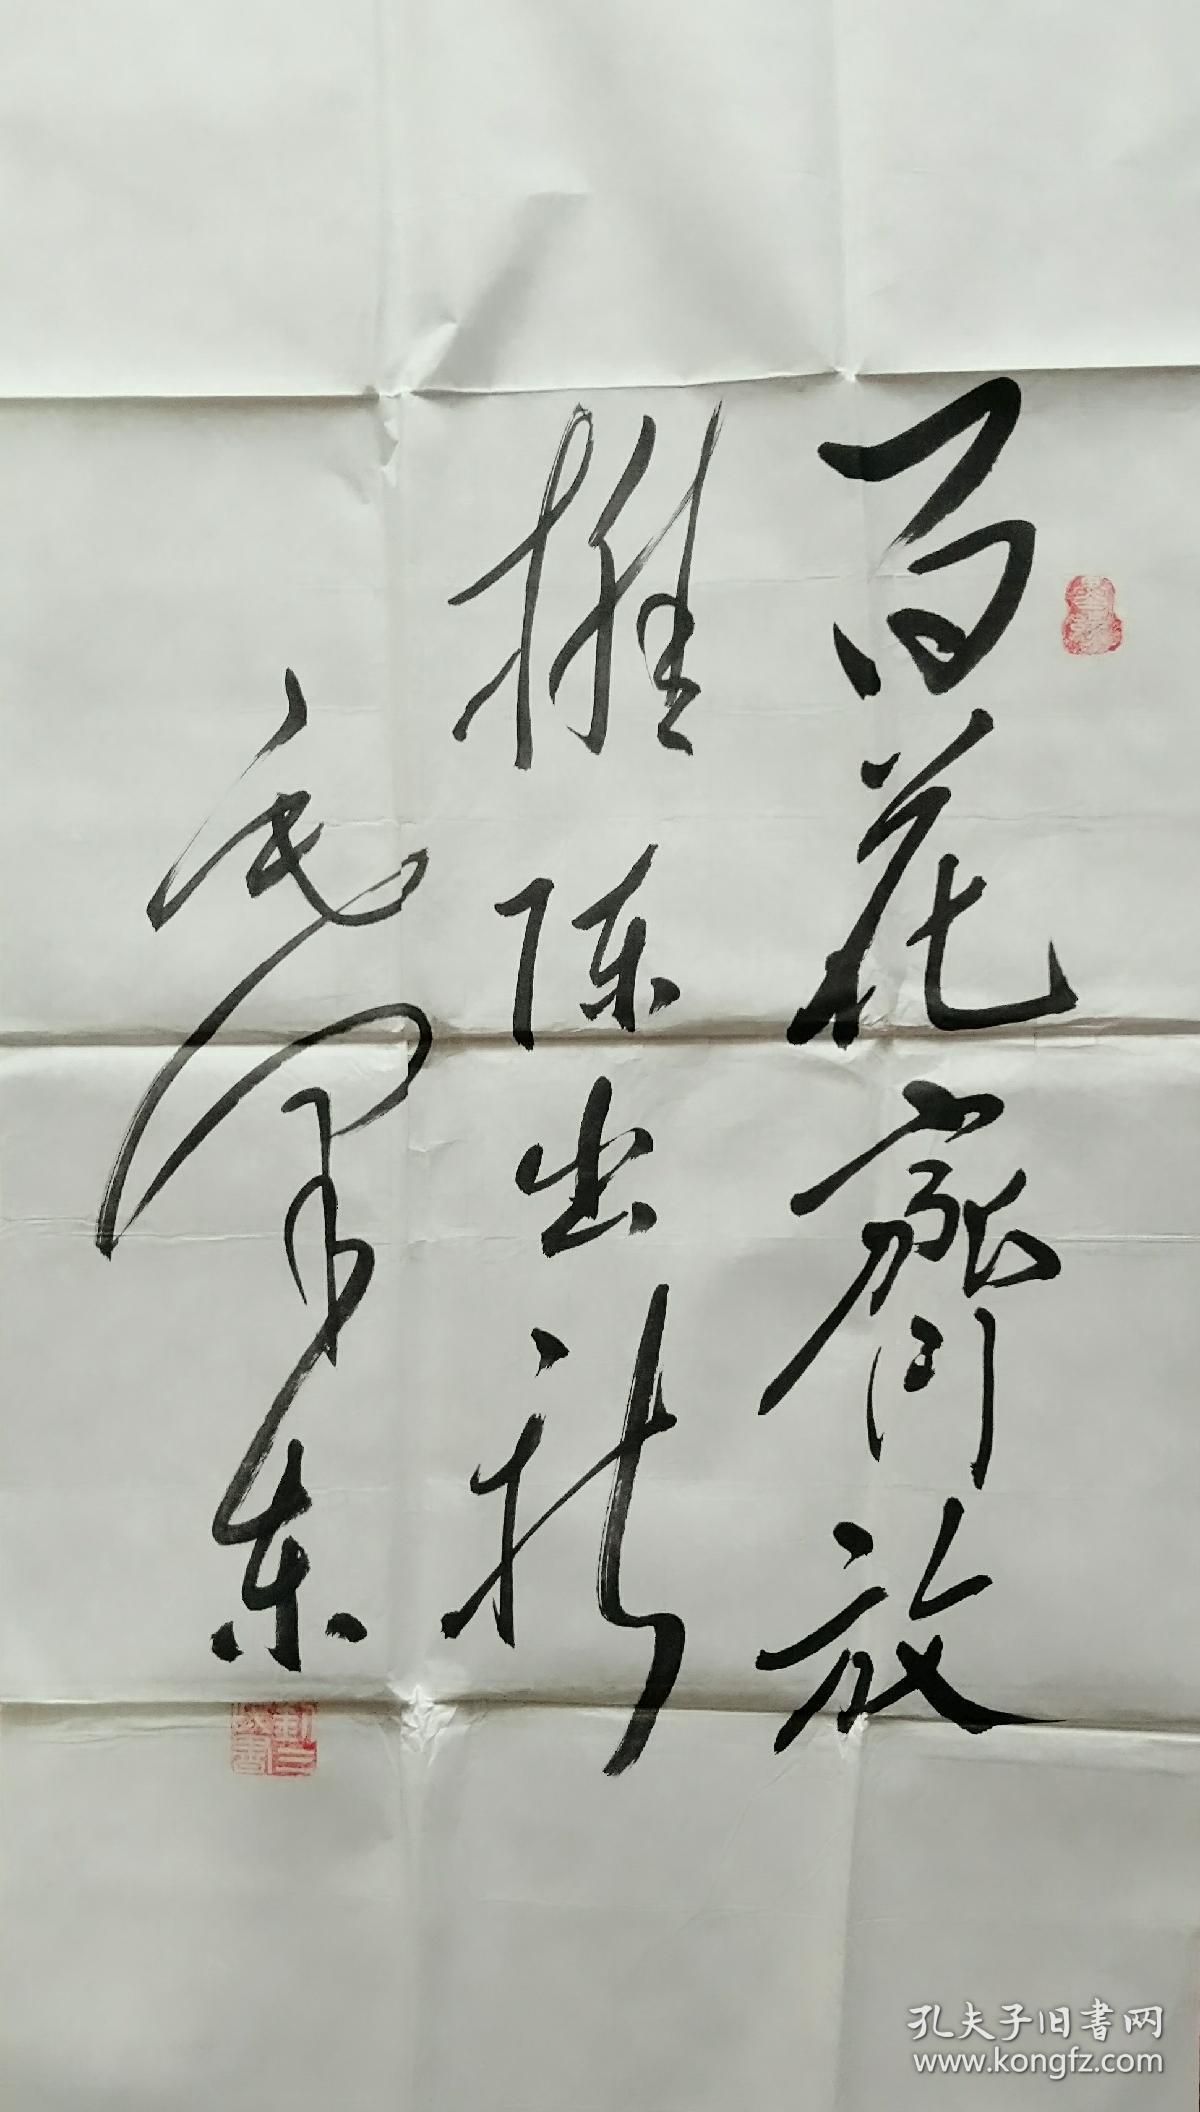 百花齊放
推陈出新
毛泽东
孔夫子旧書网
www.kongfz.com